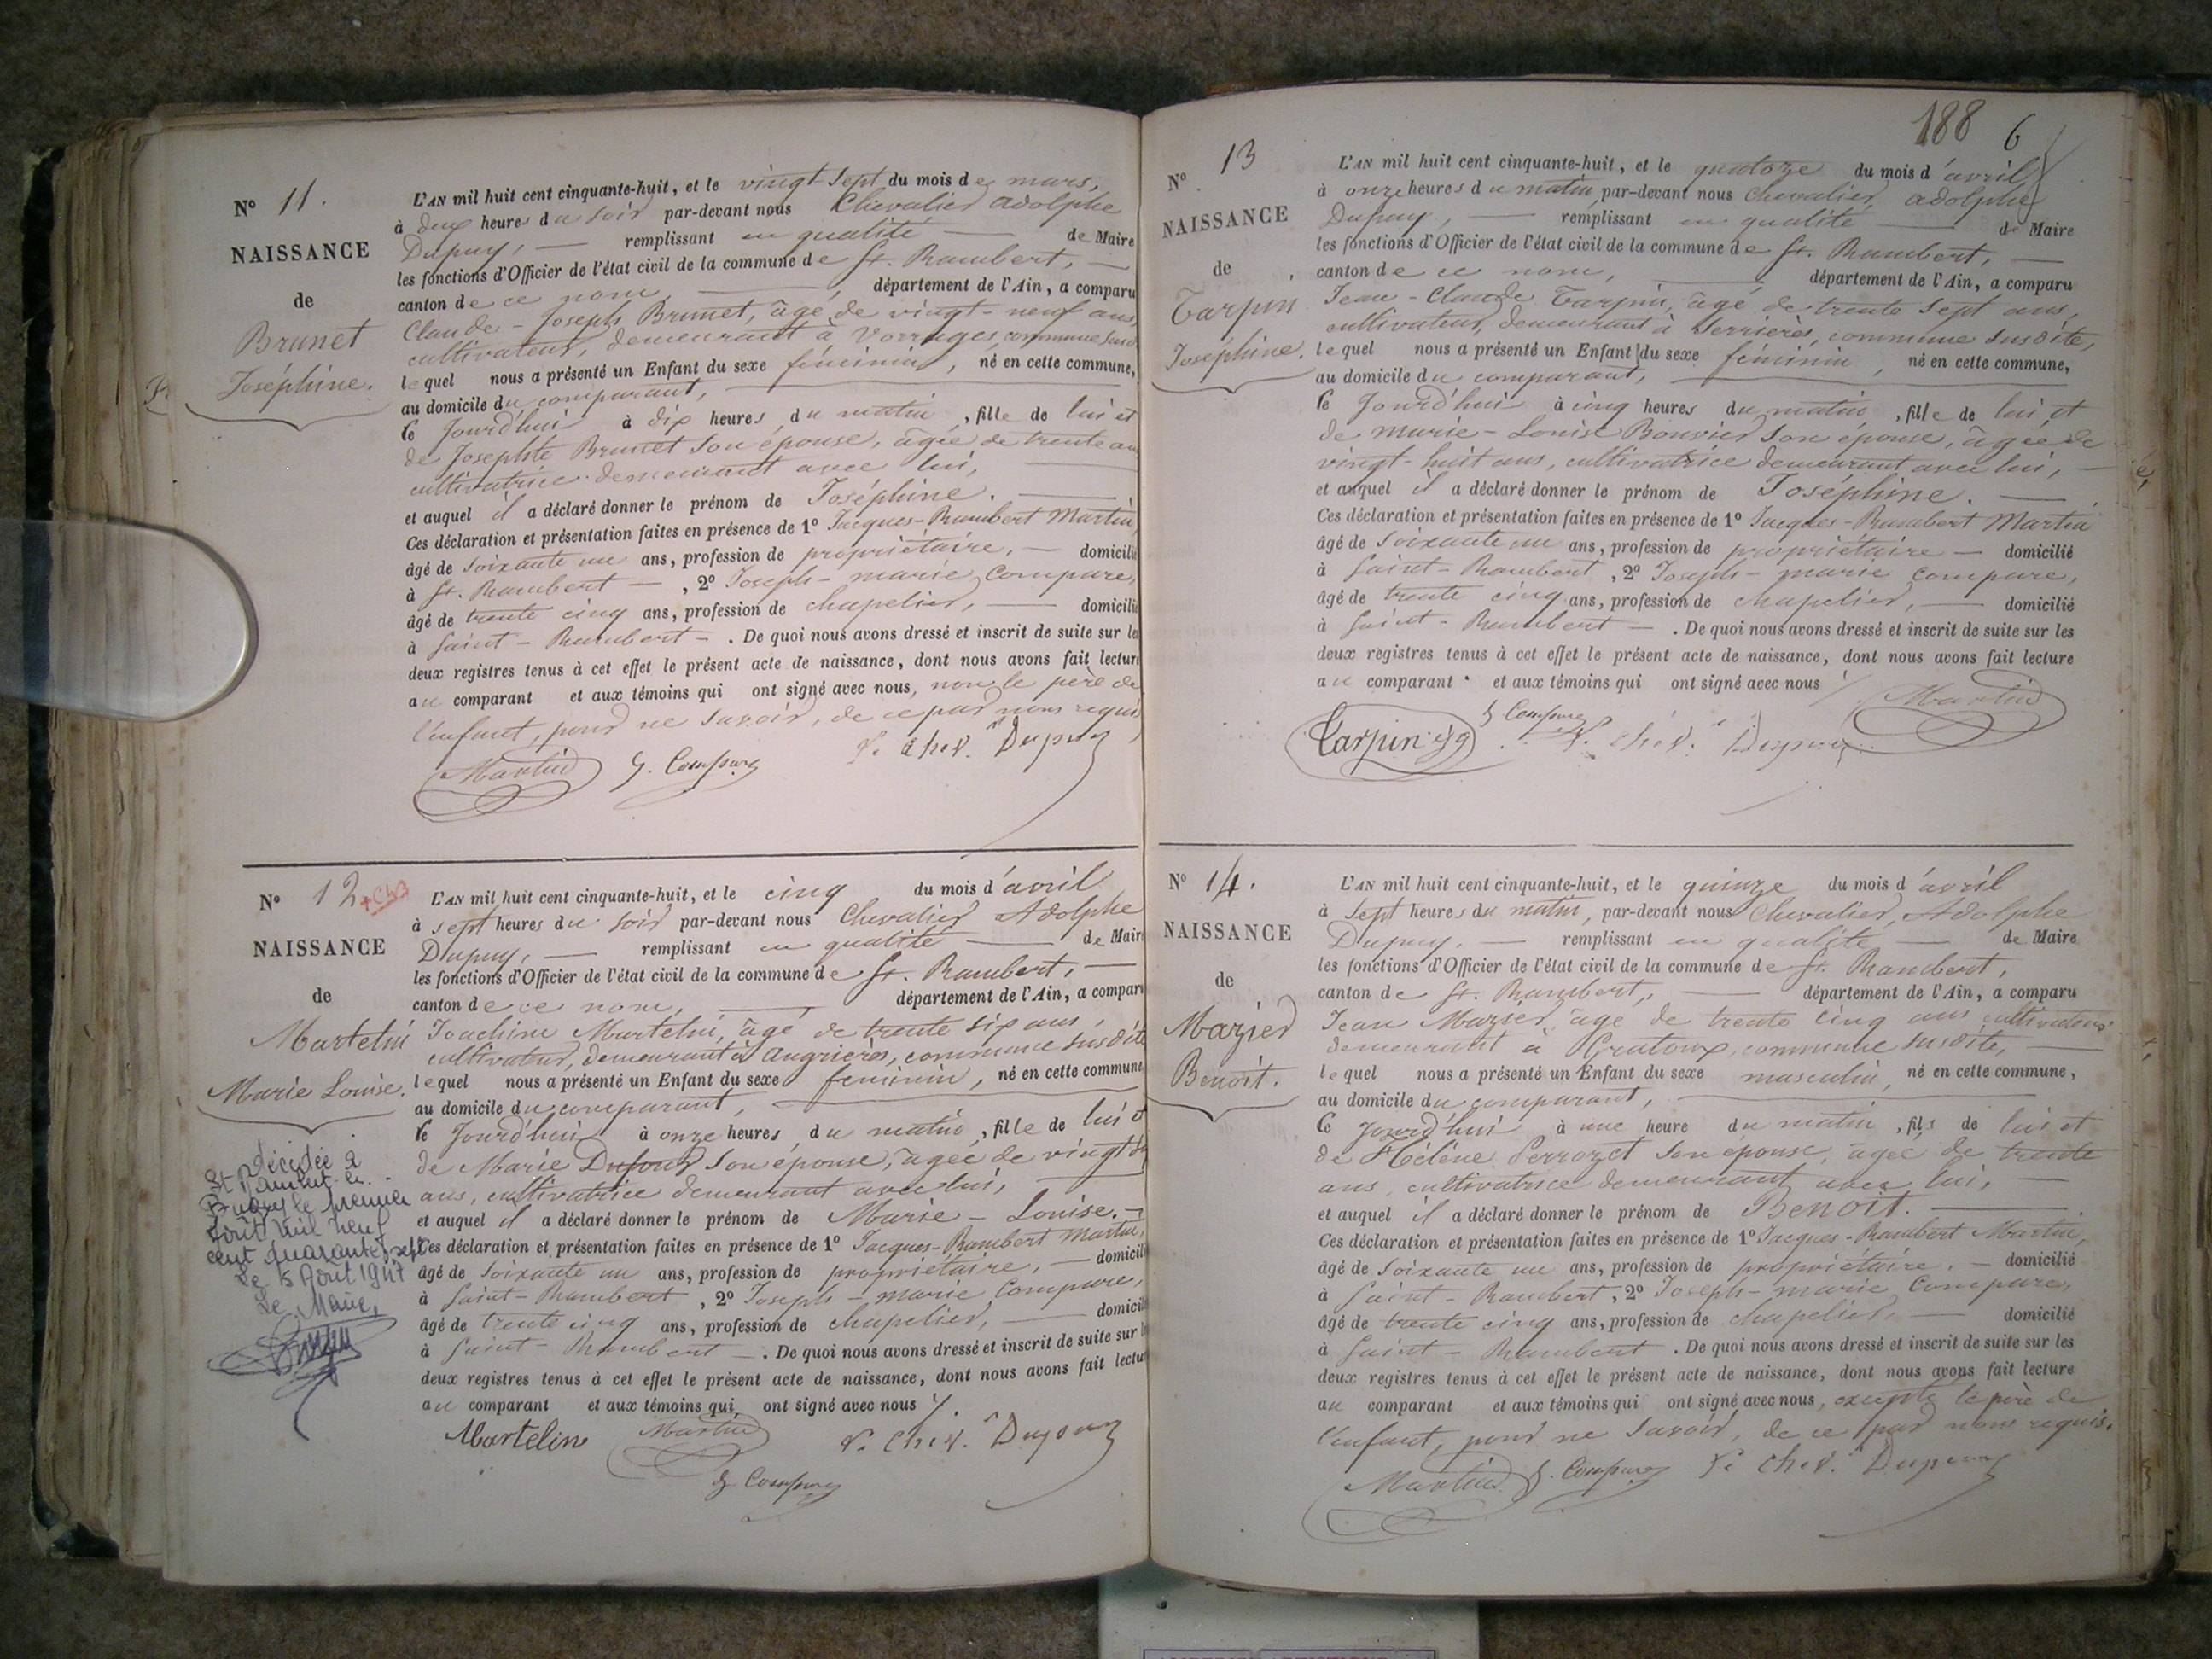 N° 11.
NAISSANCE
de
Brunet
Joséphine.
L'AN mil huit cent cinquante-huit, et le vingt-sept du mois de mars,
à deux heures du soir par-devant nous Chevalier Adolphe
Dupuy, — remplissant en qualité — de Maire
les fonctions d'Officier de l'état civil de la commune de St. Rambert, —
canton de ce nom, — département de l'Ain, a comparu
Claude-Joseph Brunet, âgé de vingt-neuf ans,
cultivateur, demeurant à Vorrages, commune susd
lequel nous a présenté un Enfant du sexe féminin, né en cette commune,
au domicile du comparant, —
ce Jourd'hui à dix heures du matin, fille de lui et
de Josephte Brunet son épouse, âgée de trente ans
cultivatrice demeurant avec lui, —
et auquel il a déclaré donner le prénom de Joséphine. —
Ces déclaration et présentation faites en présence de 1° Jacques-Rambert Martin,
âgé de soixante un ans, profession de propriétaire, — domicilié
à St. Rambert —, 2° Joseph-marie Compare,
âgé de trente cinq ans, profession de chapelier, — domicilié
à Saint-Rambert —. De quoi nous avons dressé et inscrit de suite sur les
deux registres tenus à cet effet le présent acte de naissance, dont nous avons fait lecture
au comparant et aux témoins qui ont signé avec nous, non le père de
l'enfant, pour ne savoir, de ce par nous requis
Martin J. Compare Le Chev. Dupuy
N° 12
NAISSANCE
de
Martelin
Marie Louise.
décédée à
St Rambert-en-
Bugey le premier
Août mil neuf
cent quarante sept
Le 5 Août 1947
Le Maire,
L'AN mil huit cent cinquante-huit, et le cinq du mois d'avril
à sept heures du soir par-devant nous Chevalier Adolphe
Dupuy, — remplissant en qualité — de Maire
les fonctions d'Officier de l'état civil de la commune de St. Rambert, —
canton de ce nom, — département de l'Ain, a comparu
Joachim Martelin, âgé de trente six ans,
cultivateur, demeurant à Angrières, commune susdite
lequel nous a présenté un Enfant du sexe féminin, né en cette commune,
au domicile du comparant, —
ce Jourd'hui à onze heures du matin, fille de lui et
de Marie Dufour son épouse, âgée de vingt
ans, cultivatrice demeurant avec lui, —
et auquel il a déclaré donner le prénom de Marie-Louise. —
Ces déclaration et présentation faites en présence de 1° Jacques-Rambert Martin,
âgé de soixante un ans, profession de propriétaire, — domicilié
à Saint-Rambert, 2° Joseph-marie Compare,
âgé de trente cinq ans, profession de chapelier, — domicilié
à Saint-Rambert —. De quoi nous avons dressé et inscrit de suite sur les
deux registres tenus à cet effet le présent acte de naissance, dont nous avons fait lecture
au comparant et aux témoins qui ont signé avec nous /.
Martelin Martin Le Chev. Dupuy
J. Compare
188 6
N° 13
NAISSANCE
de
Tarpin
Joséphine.
L'AN mil huit cent cinquante-huit, et le quatorze du mois d'avril
à onze heures du matin, par-devant nous Chevalier Adolphe
Dupuy, — remplissant en qualité — de Maire
les fonctions d'Officier de l'état civil de la commune de St. Rambert, —
canton de ce nom, — département de l'Ain, a comparu
Jean-Claude Tarpin, âgé de trente sept ans,
cultivateur, demeurant à Serrières, commune susdite,
lequel nous a présenté un Enfant du sexe féminin, né en cette commune,
au domicile du comparant, —
ce Jourd'hui à cinq heures du matin, fille de lui et
de Marie-Louise Bouvier son épouse, âgée de
vingt-huit ans, cultivatrice demeurant avec lui, —
et auquel il a déclaré donner le prénom de Joséphine. —
Ces déclaration et présentation faites en présence de 1° Jacques-Rambert Martin
âgé de soixante un ans, profession de propriétaire — domicilié
à Saint-Rambert, 2° Joseph-marie Compare,
âgé de trente cinq ans, profession de chapelier, — domicilié
à Saint-Rambert —. De quoi nous avons dressé et inscrit de suite sur les
deux registres tenus à cet effet le présent acte de naissance, dont nous avons fait lecture
au comparant et aux témoins qui ont signé avec nous /
Martin
Tarpin J. Compare Le Chev. Dupuy
N° 14.
NAISSANCE
de
Mazier
Benoit.
L'AN mil huit cent cinquante-huit, et le quinze du mois d'avril
à sept heures du matin, par-devant nous Chevalier, Adolphe
Dupuy, — remplissant en qualité — de Maire
les fonctions d'Officier de l'état civil de la commune de St. Rambert,
canton de St. Rambert, — département de l'Ain, a comparu
Jean Mazier, âgé de trente cinq ans cultivateur
demeurant à Gratoux, commune susdite, —
lequel nous a présenté un Enfant du sexe masculin, né en cette commune,
au domicile du comparant, —
ce Jourd'hui à une heure du matin, fils de lui et
de Hélène Perrozet son épouse, âgée de trente
ans, cultivatrice demeurant avec lui, —
et auquel il a déclaré donner le prénom de Benoit. —
Ces déclaration et présentation faites en présence de 1° Jacques-Rambert Martin,
âgé de soixante un ans, profession de propriétaire, — domicilié
à Saint-Rambert, 2° Joseph-marie Compare,
âgé de trente cinq ans, profession de chapelier, — domicilié
à Saint-Rambert. De quoi nous avons dressé et inscrit de suite sur les
deux registres tenus à cet effet le présent acte de naissance, dont nous avons fait lecture
au comparant et aux témoins qui ont signé avec nous, excepté le père de
l'enfant, pour ne savoir, de ce par nous requis.
Martin J. Compare Le Chev. Dupuy